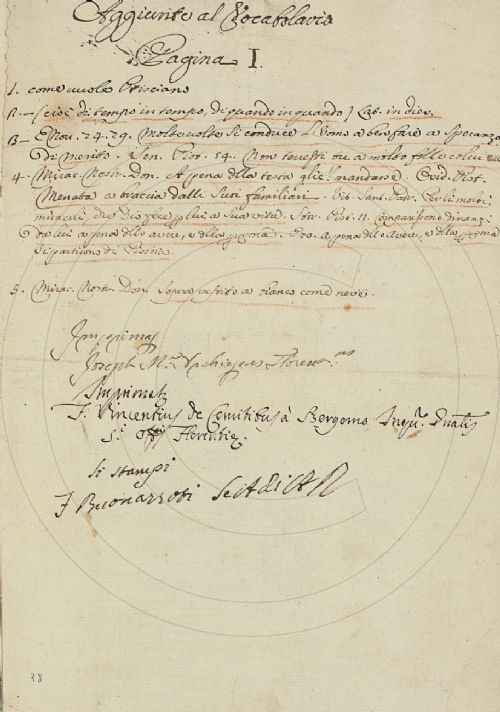 Aggiunte al Vocabolario
Pagina I.
1. come vuole Prisciano
2.- (cioè di tempo in tempo, di quando in quando) Lat. in dies.
3- E Nov. 24. 29. Molte volte si conduce L'Uomo a ben fare a speranza
di merito. Sen. Pist. 54. Non a molto folle colui
4. Mirac. Nostr. Don. A pena della testa gliel mandasse. Ovid. Pist.
Menata a braccia dalli suoi familiari. Vit. Sant. Pad. Per li molti
miracoli, che Dio fece p lui a sua vita. Stor. Pist. 11. dinanzi
da lui a pena dello avere, e della psona. a pena dello avere, e della psona
5. Mirac. Nostr. Don. Sopra vestito a bianco come neve.
Imprimatur
Joseph M.
Imprimatr
F. Vincentius de Comitibus à Bergomo Inqu.r Gnalis
S.i Offi Florentie.
Si stampi
F Buonarroti
38